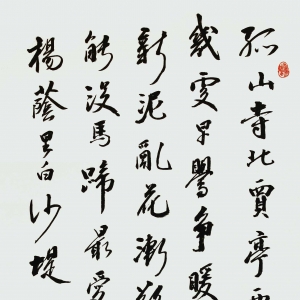 孤山寺北賈亭
幾處早鶯争暖
新泥亂花漸欲
能没馬蹄最愛
楊蔭里白沙堤